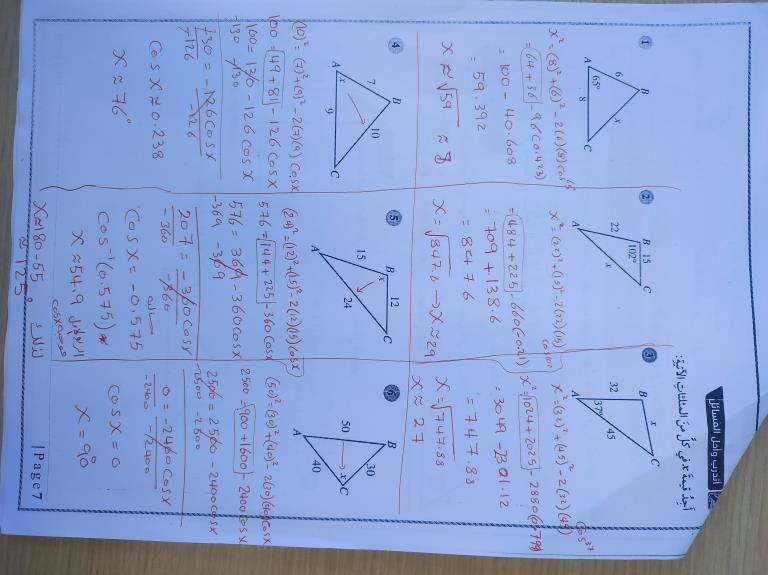 أتدرب وأحل المسائل
أجد قيمة x في كل من المثلثات الآتية:
1
A
B
C
6
x
65°
8
x² = (8)² + (6)² - 2(6)(8) cos 65
= 64 + 36 - 96(0.423)
= 100 - 40.608
= 59.392
x ≈ √59 ≈ 8
2
A
B
C
22
15
102°
x
x² = (22)² + (15)² - 2(22)(15) cos 102
= 484 + 225 - 660(-0.21)
= 709 + 138.6
= 847.6
x = √847.6 → x ≈ 29
3
A
B
C
32
x
37°
45
x² = (32)² + (45)² - 2(32)(45) cos 37
x² = 1024 + 2025 - 2880(0.799)
= 3049 - 2301.12
= 747.88
x = √747.88
x ≈ 27
4
A
B
C
7
10
x
9
(10)² = (7)² + (9)² - 2(7)(9) cos x
100 = 49 + 81 - 126 cos x
100 = 130 - 126 cos x
-130 -130
-30 = -126 cos x
-126 -126
cos x ≈ 0.238
x ≈ 76°
5
A
B
C
15
12
x
24
(24)² = (12)² + (15)² - 2(12)(15) cos x
576 = 144 + 225 - 360 cos x
576 = 369 - 360 cos x
-369 -369
207 = -360 cos x
-360 -360
cos x = -0.575
cos⁻¹(0.575)
x ≈ 54.9
x ≈ 180 - 55
≈ 125°
6
A
B
C
50
30
x
40
(50)² = (30)² + (40)² - 2(30)(40) cos x
2500 = 900 + 1600 - 2400 cos x
2500 = 2500 - 2400 cos x
-2500 -2500
0 = -2400 cos x
-2400 -2400
cos x = 0
x = 90
| Page 7